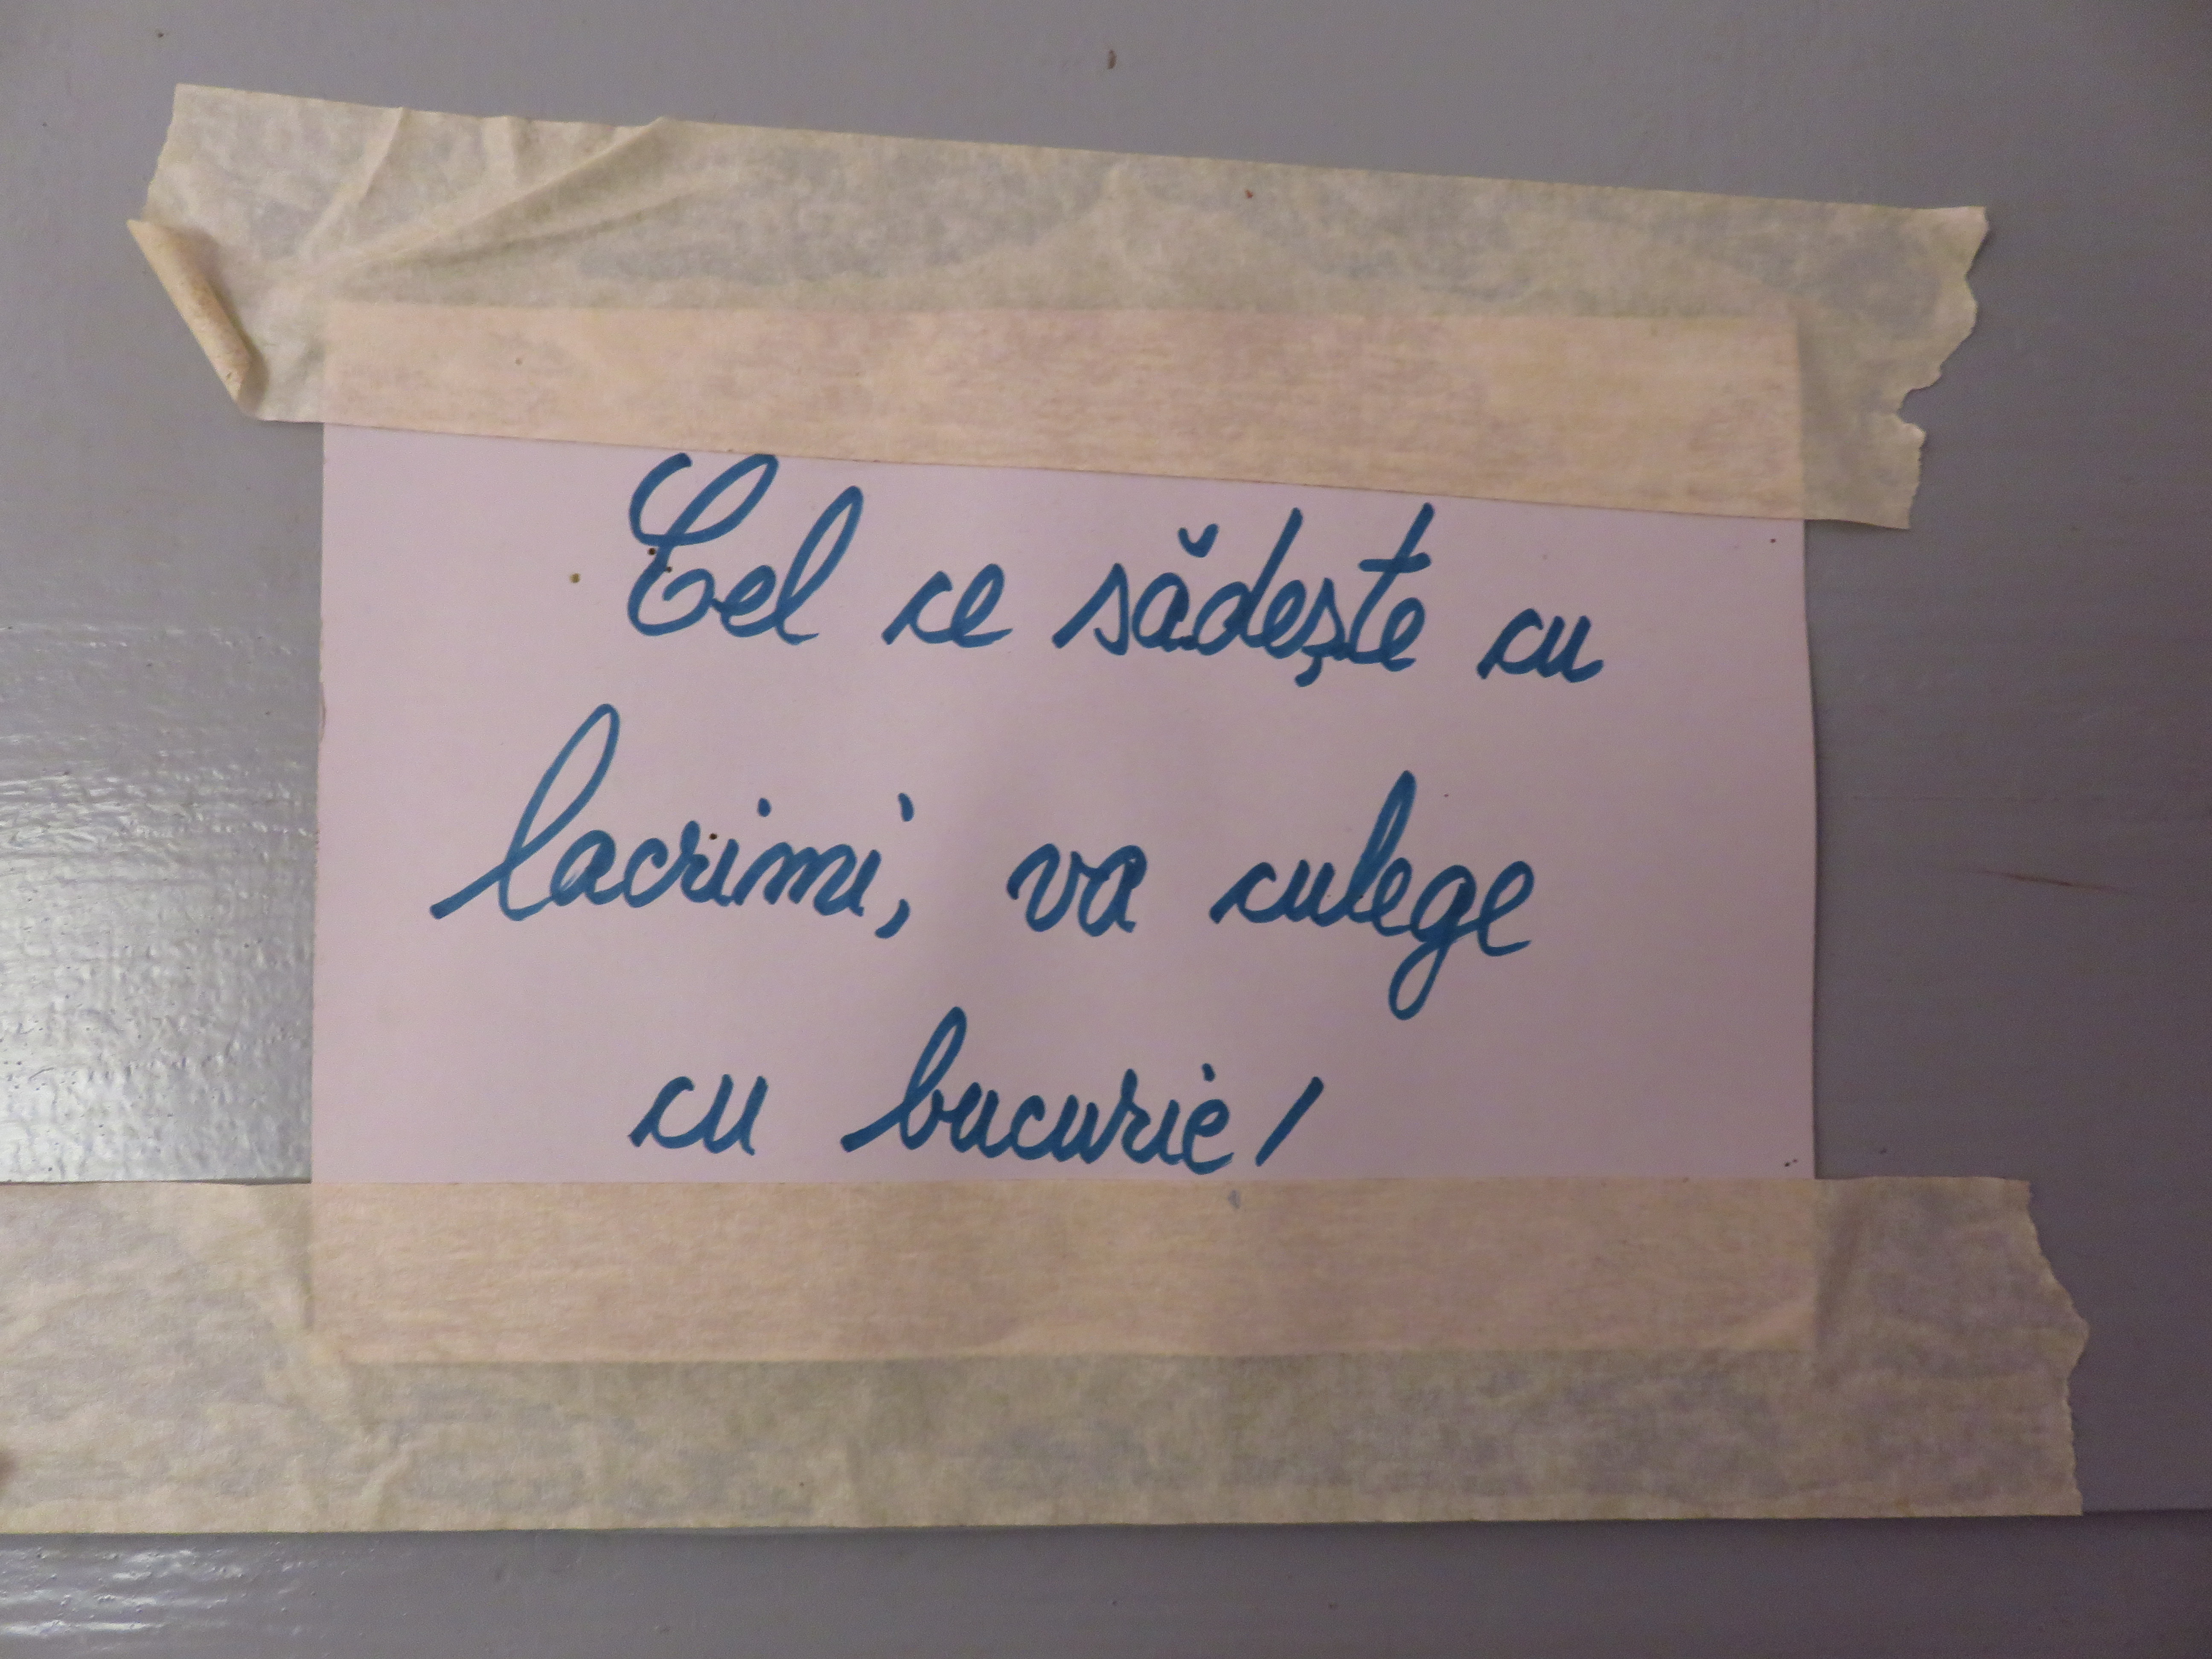 Cel ce sădește cu
lacrimi, va culege
cu bucurie!